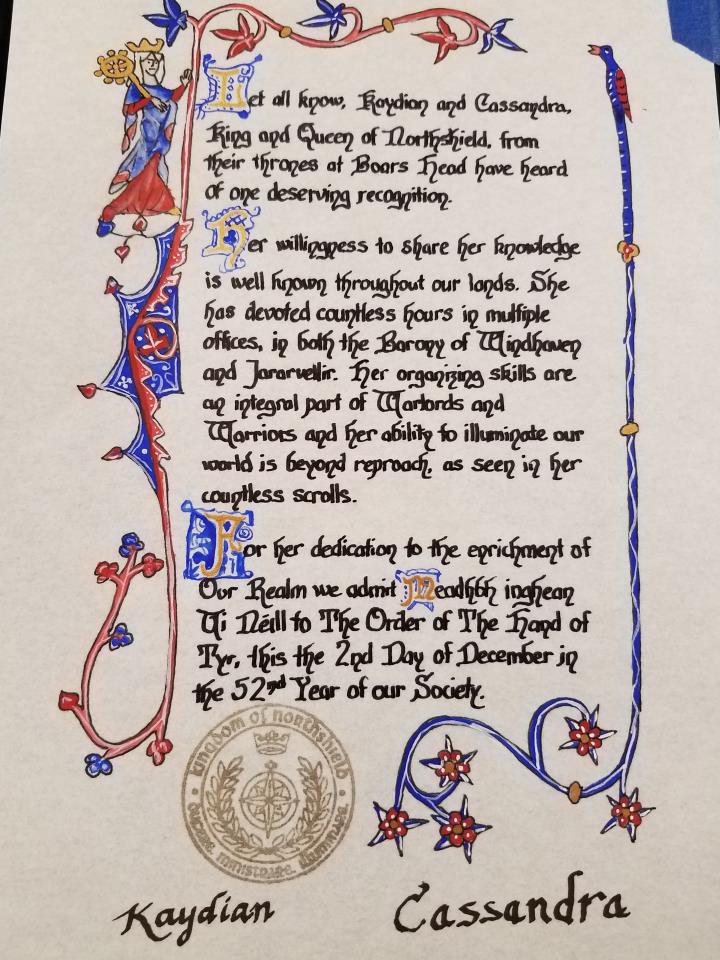 Let all know, Kaydian and Cassandra,
King and Queen of Northshield, from
their thrones at Boars Head have heard
of one deserving recognition.
Her willingness to share her knowledge
is well known throughout our lands. She
has devoted countless hours in multiple
offices, in both the Barony of Windhaven
and Jararvellir. Her organizing skills are
an integral part of Warlords and
Warriors and her ability to illuminate our
world is beyond reproach, as seen in her
countless scrolls.
For her dedication to the enrichment of
Our Realm we admit Meadhbh inghean
Ui Néill to The Order of The Hand of
Tyr, this the 2nd Day of December in
the 52nd Year of our Society.
kingdom of northshield
educare, ministrare, illuminare
Kaydian Cassandra